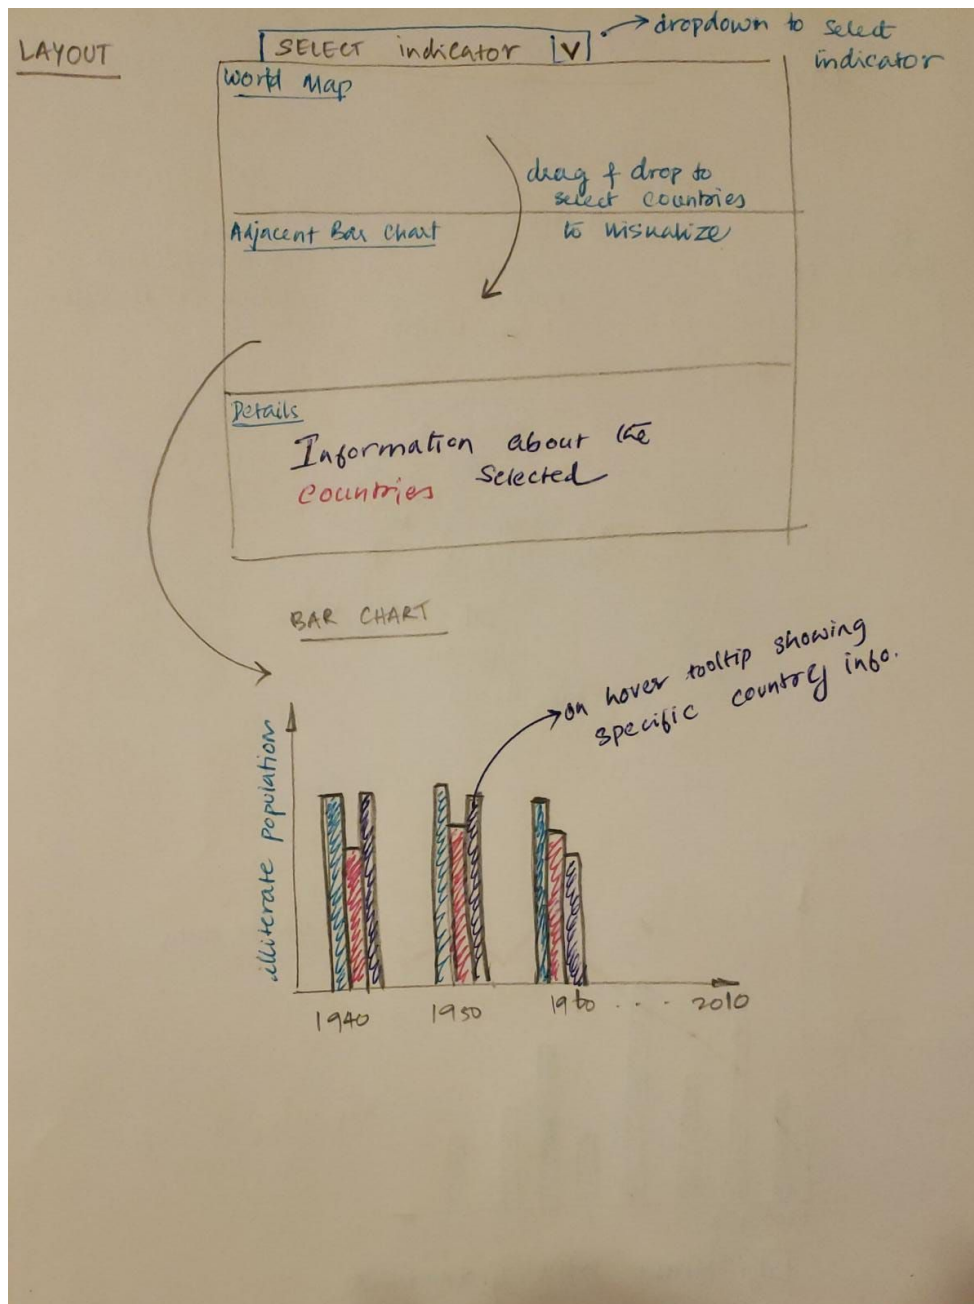 LAYOUT
SELECT indicator V
dropdown to select
indicator
World Map
drag & drop to
select countries
to visualize
Adjacent Bar Chart
Details
Information about the
countries selected
BAR CHART
on hover tooltip showing
specific country info.
illiterate population
1940 1950 1960 . . . . 2010